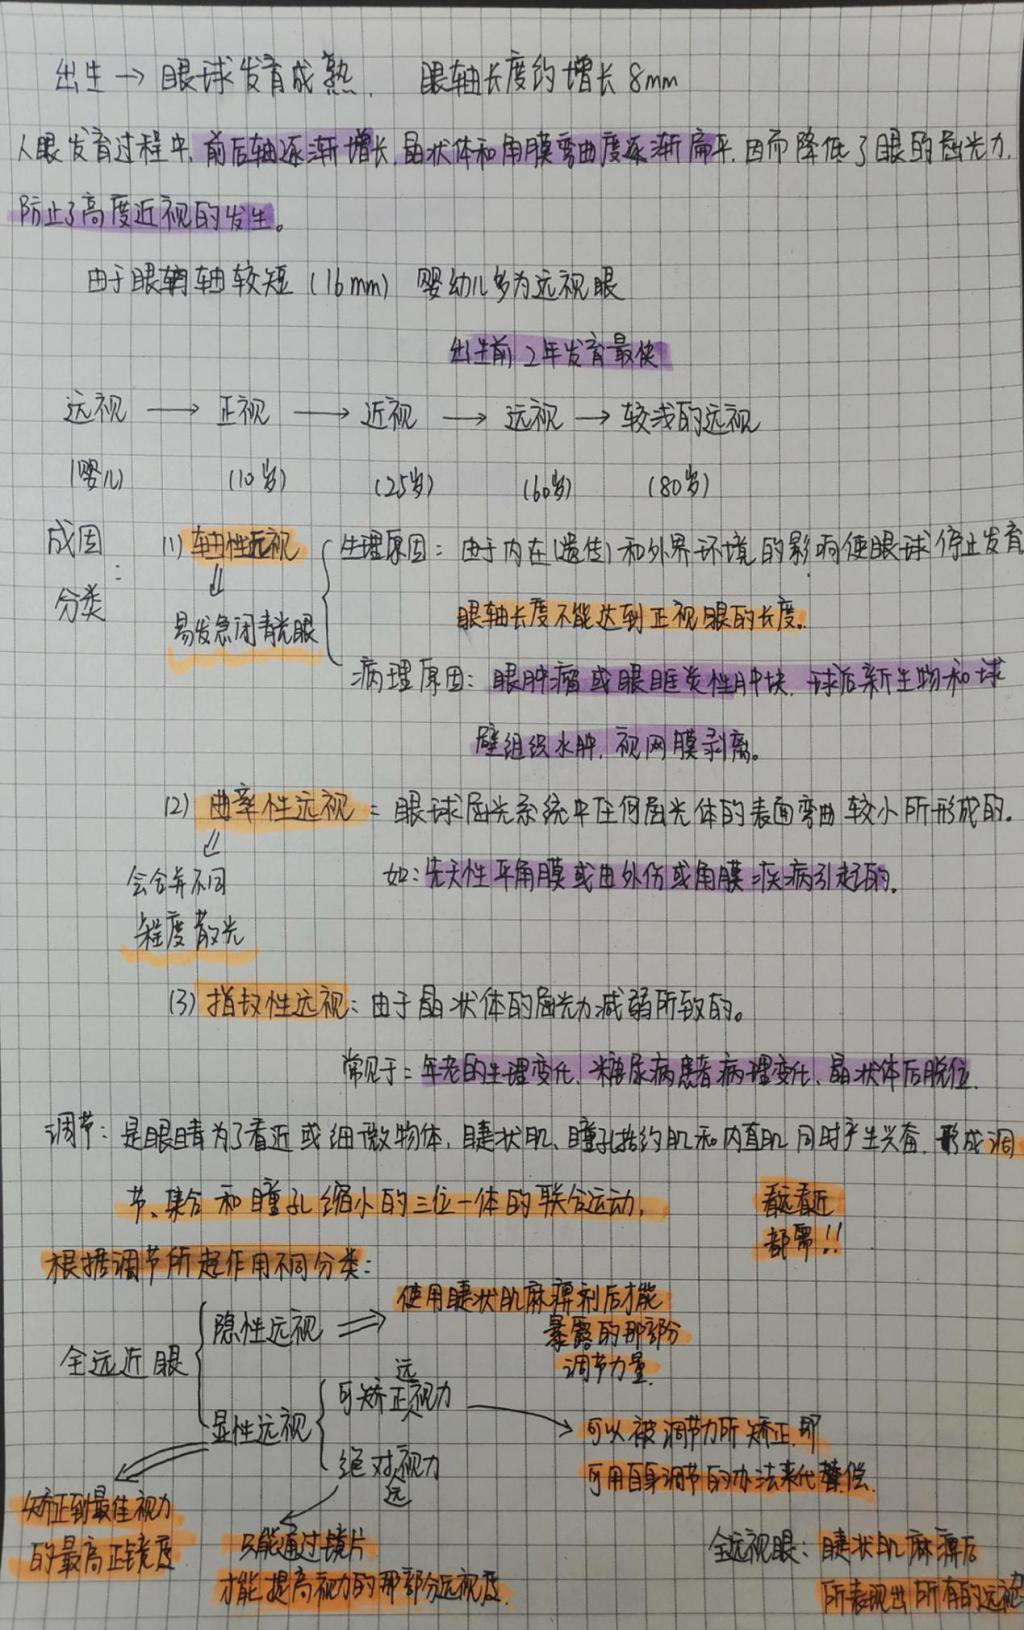 出生→眼球发育成熟. 眼轴长度约增长8mm
人眼发育过程中,前后轴逐渐增长,晶状体和角膜弯曲度逐渐扁平,因而降低了眼的屈光力,
防止了高度近视的发生。
由于眼轴较短(16mm) 婴幼儿多为远视眼
出生前2年发育最快
远视→正视→近视→远视→较浅的远视
(婴儿) (10岁) (25岁) (60岁) (80岁)
成因:分类
(1)轴性远视
⇓
易发急闭青光眼
生理原因:由于内在(遗传)和外界环境的影响使眼球停止发育
眼轴长度不能达到正视眼的长度。
病理原因:眼肿瘤或眼眶炎性肿块.球后新生物和球
壁组织水肿,视网膜剥离。
(2)曲率性远视:眼球屈光系统中任何屈光体的表面弯曲较小所形成的.
⇓
会合并不同
程度散光
如:先天性平角膜或由外伤或角膜疾病引起的.
(3)指数性远视:由于晶状体的屈光力减弱所致的。
常见于:年老的生理变化、糖尿病患者病理变化、晶状体后脱位.
调节:是眼睛为了看近或细微物体,睫状肌、瞳孔括约肌和内直肌同时产生兴奋,形成调
节、集合和瞳孔缩小的三位一体的联合运动.
看远看近
都需!!
根据调节所起作用不同分类:
全远近眼
隐性远视⇒使用睫状肌麻痹剂后才能
暴露的那部分
调节力量.
显性远视
远
可矫正视力→可以被调节力所矫正.即
可用自身调节的办法来代替偿.
绝对视力
远
矫正到最佳视力
的最高正镜度
只能通过镜片
才能提高视力的那部分远视度.
全远视眼:睫状肌麻痹后
所表现出所有的远视